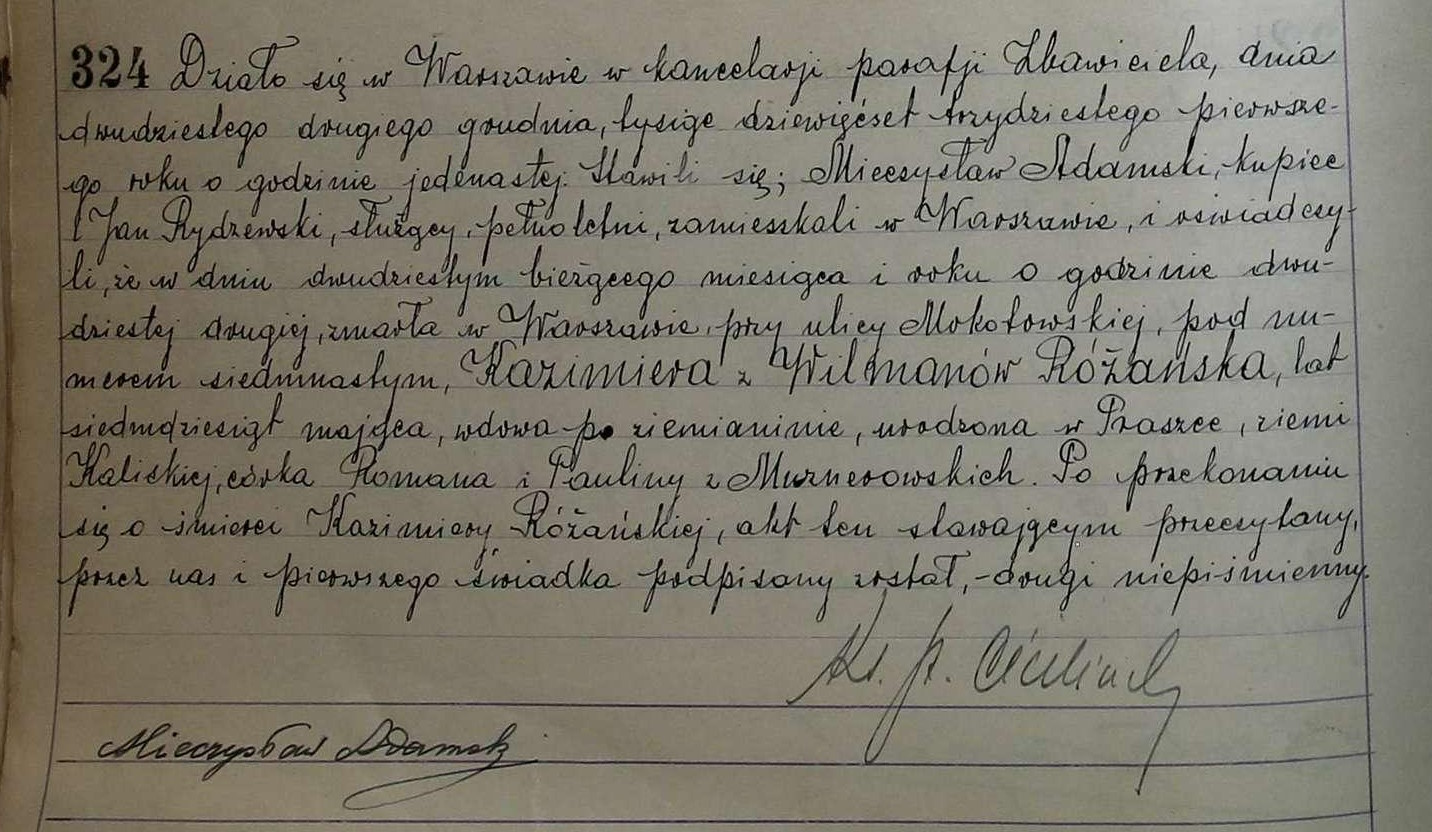 324 Działo się w Warszawie w kancelarji parafji Zbawiciela, dnia
dwudziestego drugiego grudnia, tysiąc dziewięćset trzydziestego pierwsze-
go roku o godzinie jedenastej. Stawili się; Mieczysław Adamski, kupiec
i Jan Rydzewski, służący, pełnoletni, zamieszkali w Warszawie, i oświadczy-
li, że w dniu dwudziestym bieżącego miesiąca i roku o godzinie dwu-
dziestej drugiej, zmarła w Warszawie, przy ulicy Mokotowskiej, pod nu-
merem siedmnastym, Kazimiera z Wilmanów Różańska, lat
siedmdziesiąt mająca, wdowa po ziemianinie, urodzona w Praszce, ziemi
Kaliskiej, córka Romana i Pauliny z Muznerowskich. Po przekonaniu
się o śmierci Kazimiery Różańskiej, akt ten stawającym przeczytany,
przez nas i pierwszego świadka podpisany został, - drugi niepiśmienny.
Ks. P.
Mieczysław Adamski